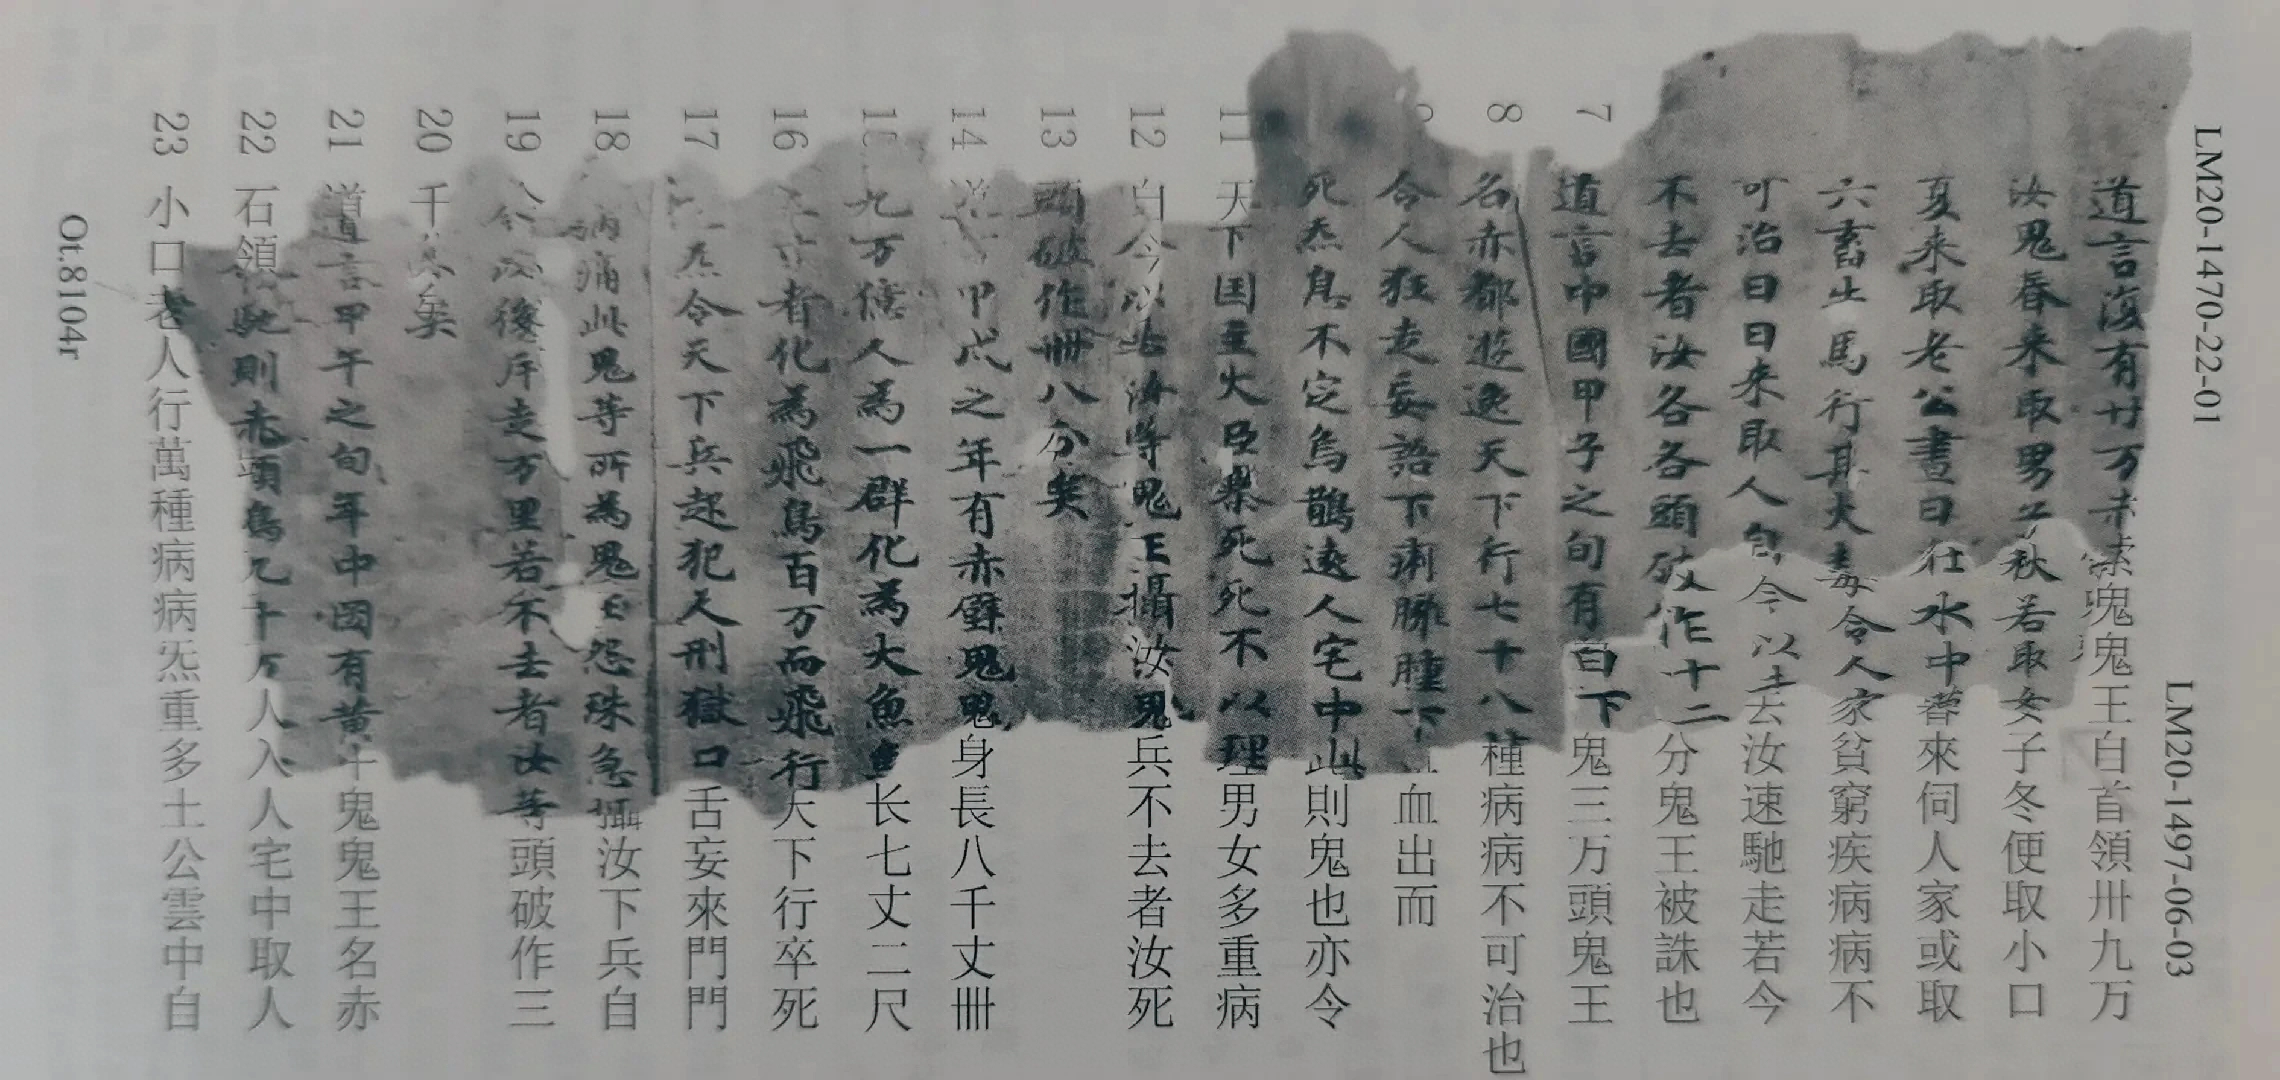 LM20-1470-22-01
LM20-1497-06-03
道言復有廿万赤索鬼鬼王自首領卅九万
汝鬼春来取男子秋若取女子冬便取小口
夏来取老公晝日在水中藏來伺人家或取
六畜牛馬行其大毒令人家貧窮疾病病不
可治日日来取人自今以去汝速馳走若今
不去者汝各各頭破作十二分鬼王被誅也
7 道言中國甲子之旬有白下鬼三万頭鬼王
8 名赤都遊逸天下行七十八種病病不可治也
令人狂走妄語下痢腫下血出而
死炁息不定烏鵲遶人宅中此則鬼也亦令
11 天下国主大臣暴死死不以理男女多重病
12 自今以去汝等鬼王攝汝鬼兵不去者汝死
13 頭破作卌八分矣
14 道言甲戌之年有赤癖鬼鬼身長八千丈卌
九万億人為一群化為大魚魚长七丈二尺
16 者化為飛鳥百万而飛行天下行卒死
17 炁令天下兵起犯天刑獄口舌妄來門門
18 病痛此鬼等所為鬼王怨殊急攝汝下兵自
19 今以後斥走万里若不去者汝等頭破作三
20 千分矣
21 道言甲午之旬年中國有黃牛鬼鬼王名赤
22 石領馳則赤頭烏九千万人入人宅中取人
23 小口老人行萬種病病炁重多土公雲中自
Ot.8104r